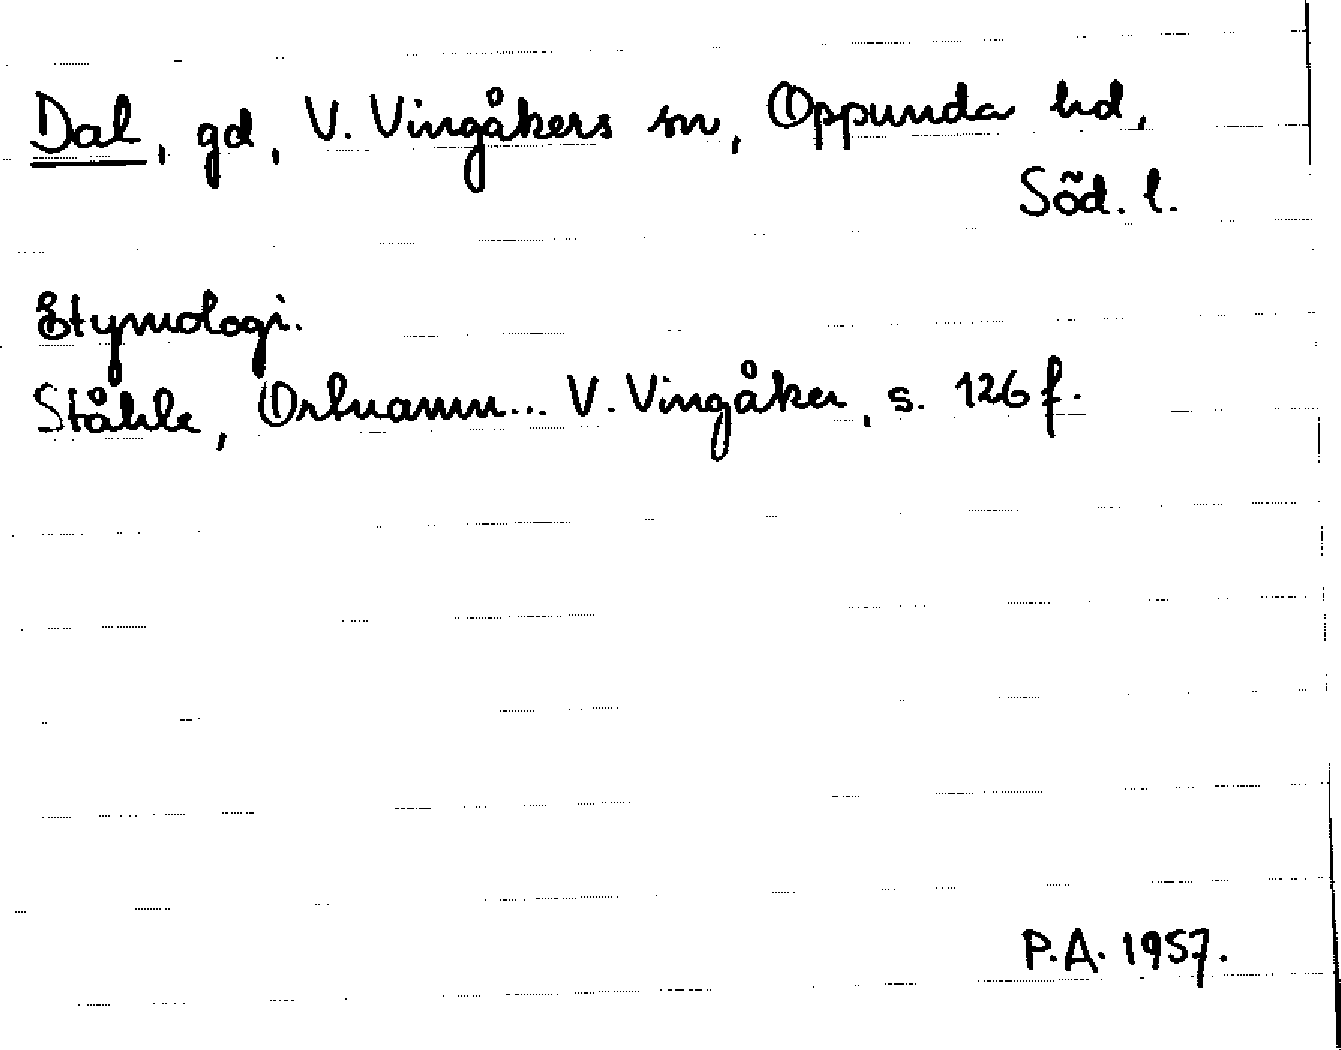 Dal, gd, V. Vingåkers sn, Oppunda hd,
Söd. l.
Etymologi.
Ståhle, Ortnamn... V. Vingåker, s. 126 f.
P.A. 1957.